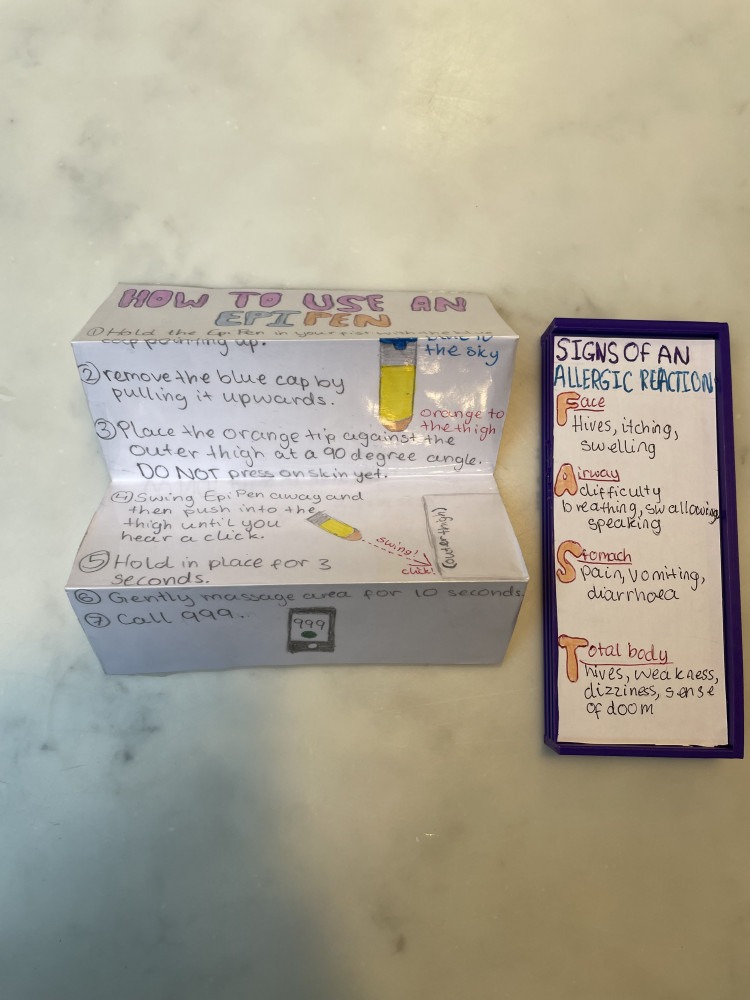 HOW TO USE AN
EPIPEN
① Hold the EpiPen in your fist with the blue
cap pointing up.
blue to
the sky
② remove the blue cap by
pulling it upwards.
orange to
the thigh
③ Place the orange tip against the
outer thigh at a 90 degree angle.
DO NOT press on skin yet.
④ Swing EpiPen away and
then push into the
thigh until you
hear a click.
swing!
click!
(outer thigh)
⑤ Hold in place for 3
seconds.
⑥ Gently massage area for 10 seconds.
⑦ Call 999.
999
SIGNS OF AN
ALLERGIC REACTION
Face
Hives, itching,
swelling
Airway
difficulty
breathing, swallowing
speaking
Stomach
pain, vomiting,
diarrhoea
Total body
hives, weakness,
dizziness, sense
of doom